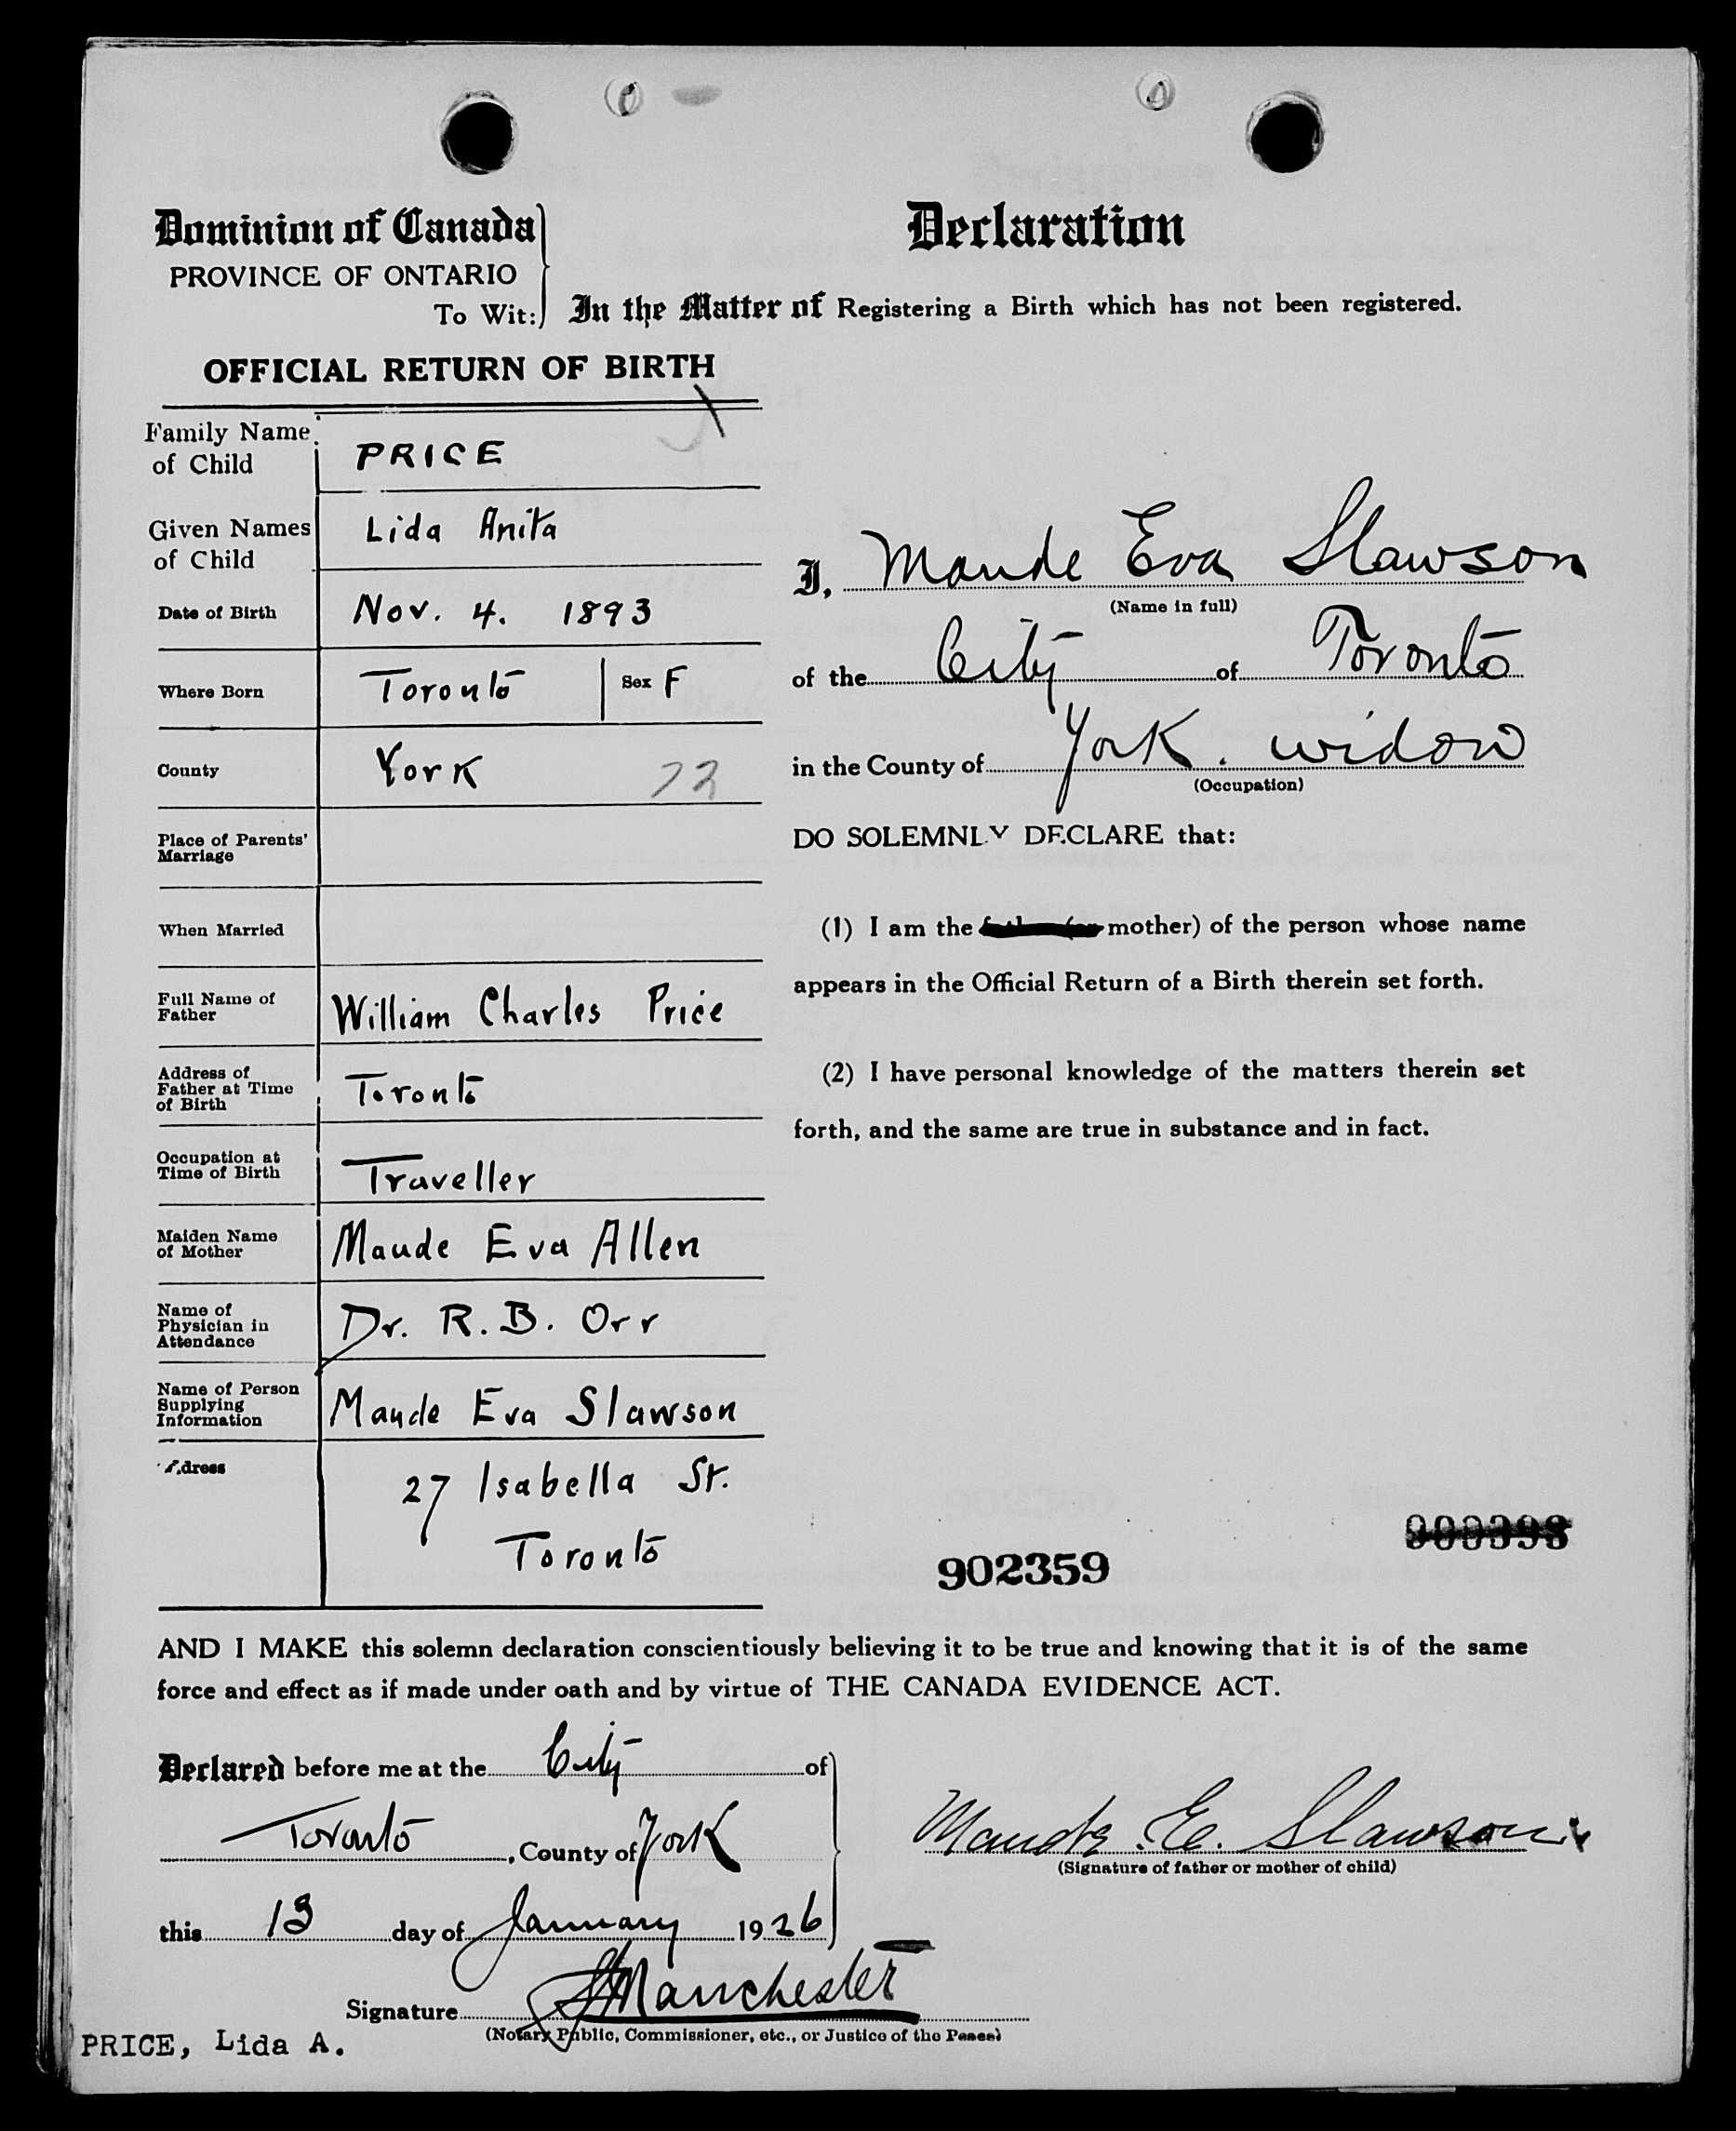 Dominion of Canada
PROVINCE OF ONTARIO
To Wit:
Declaration
In the Matter of Registering a Birth which has not been registered.
OFFICIAL RETURN OF BIRTH
Family Name of Child PRICE
Given Names of Child Lida Anita
Date of Birth Nov. 4. 1893
Where Born Toronto Sex F
County York 72
Place of Parents' Marriage
When Married
Full Name of Father William Charles Price
Address of Father at Time of Birth Toronto
Occupation at Time of Birth Traveller
Maiden Name of Mother Maude Eva Allen
Name of Physician in Attendance Dr. R. B. Orr
Name of Person Supplying Information Maude Eva Slawson
Address 27 Isabella St.
Toronto
I, Maude Eva Slawson
(Name in full)
of the City of Toronto
in the County of York. widow
(Occupation)
DO SOLEMNLY DECLARE that:
(1) I am the mother) of the person whose name
appears in the Official Return of a Birth therein set forth.
(2) I have personal knowledge of the matters therein set
forth, and the same are true in substance and in fact.
902359
AND I MAKE this solemn declaration conscientiously believing it to be true and knowing that it is of the same
force and effect as if made under oath and by virtue of THE CANADA EVIDENCE ACT.
Declared before me at the City of
Toronto, County of York
this 13 day of January 1926
Maude E. Slawson
(Signature of father or mother of child)
Signature Manchester
(Notary Public, Commissioner, etc., or Justice of the Peace)
PRICE, Lida A.